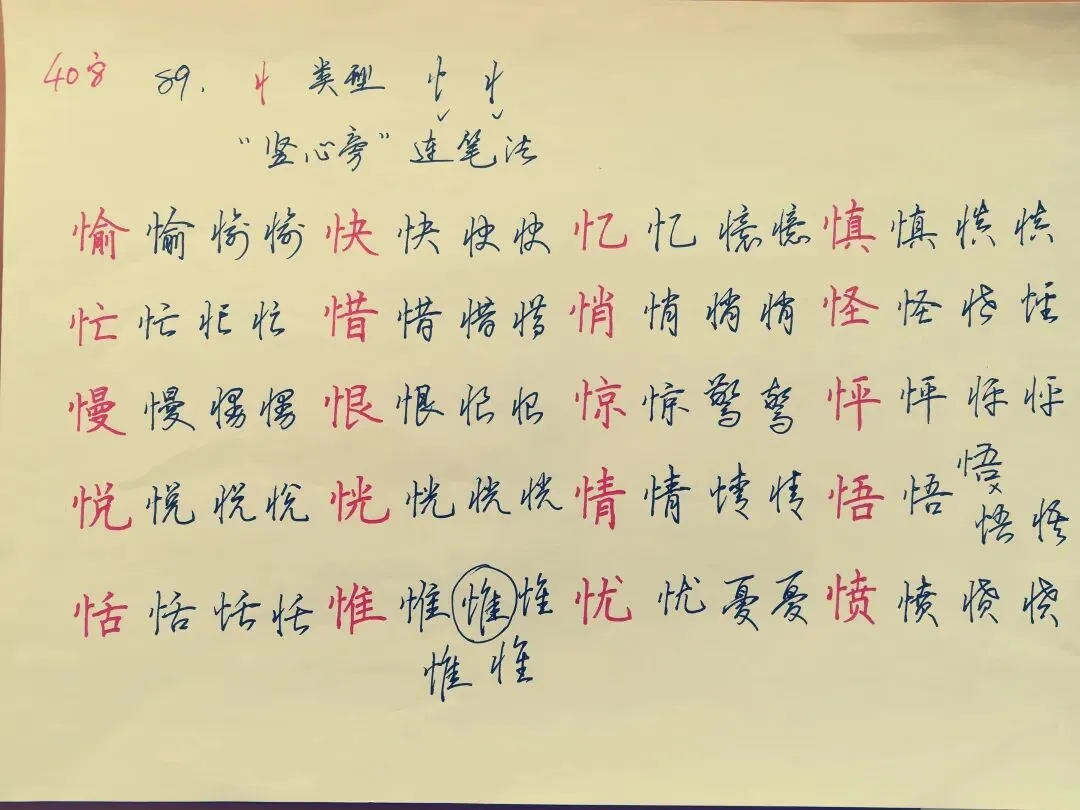 40字 89. 忄类型 忄 忄
“竖心旁”连笔法
愉愉愉愉 快快快快 忆忆憶憶 慎慎慎慎
忙忙忙忙 惜惜惜惜 悄悄悄悄 怪怪怪怪
慢慢慢慢 恨恨恨恨 惊惊驚驚 怦怦怦怦
悦悦悦悦 恍恍恍恍 情情情情 悟悟悟
悟悟
恬恬恬恬 惟惟惟惟 忧忧憂憂 愤愤愤愤
惟惟